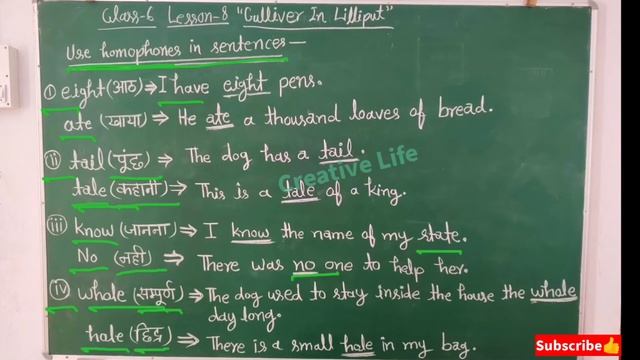 Class-6 Lesson-8 "Gulliver In Lilliput"
Use homophones in sentences—
(i) eight (आठ) ⇒ I have eight pens.
ate (खाया) ⇒ He ate a thousand loaves of bread.
(ii) tail (पूंछ) ⇒ The dog has a tail.
Creative Life
tale (कहानी) ⇒ This is a tale of a king.
(iii) know (जानना) ⇒ I know the name of my state.
No (नहीं) ⇒ There was no one to help her.
(iv) whole (सम्पूर्ण) ⇒ The dog used to stay inside the house the whole
day long.
hole (छिद्र) ⇒ There is a small hole in my bag.
Subscribe👍